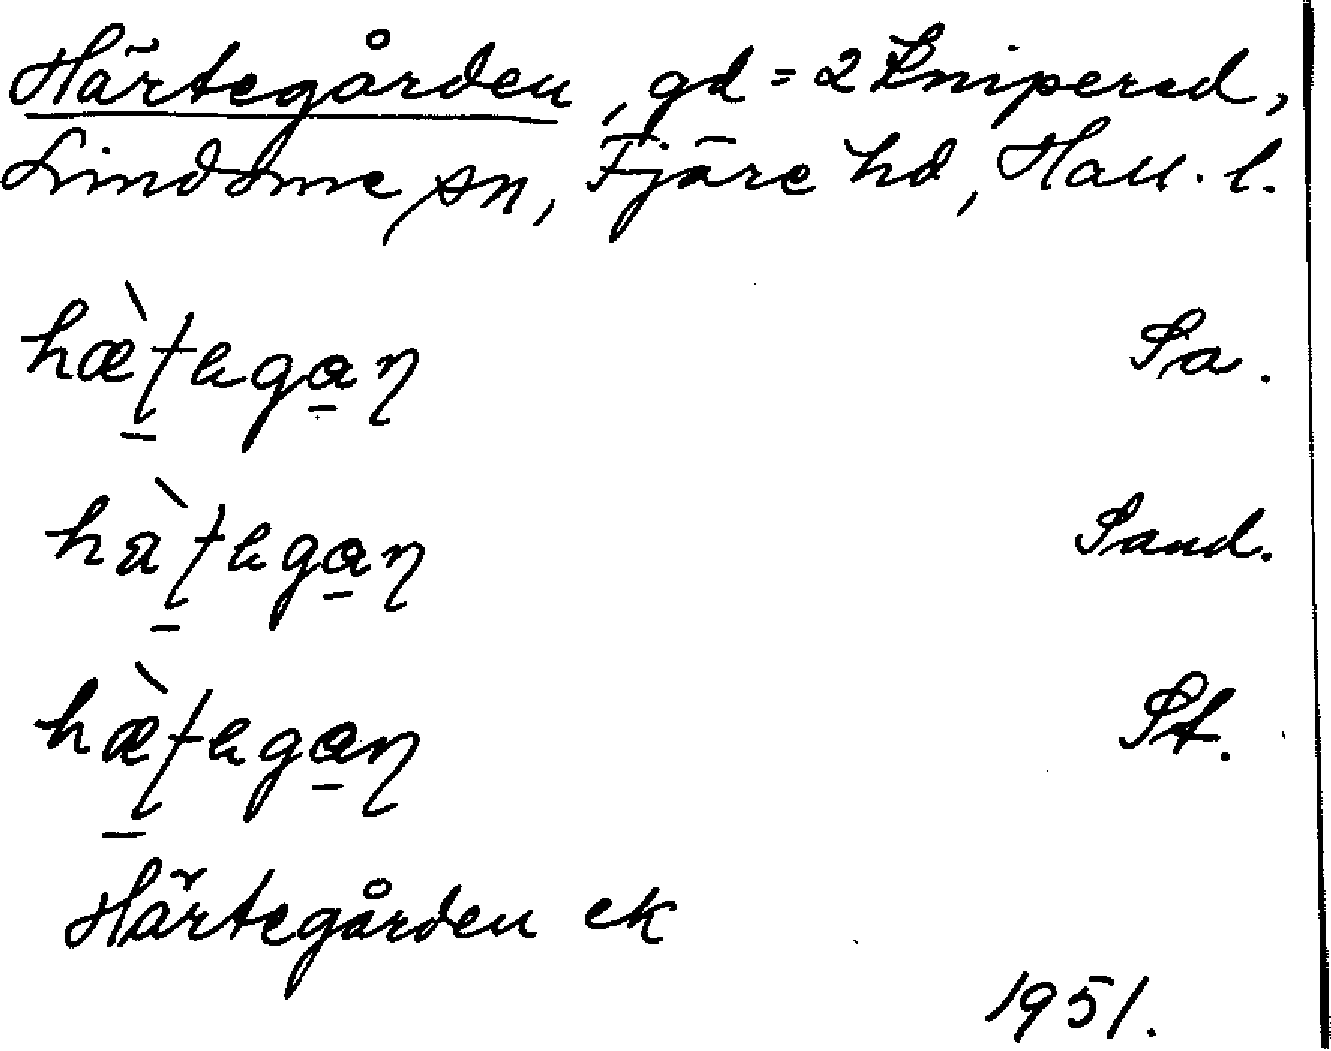 Härtegården, gd = 2 Knipered,
Lindome sn, Fjäre hd, Hall. l.
hæ̀ʈegaɳ Sa.
hàʈegaɳ Sand.
hæ̀ʈegaɳ St.
Härtegården ek
1951.